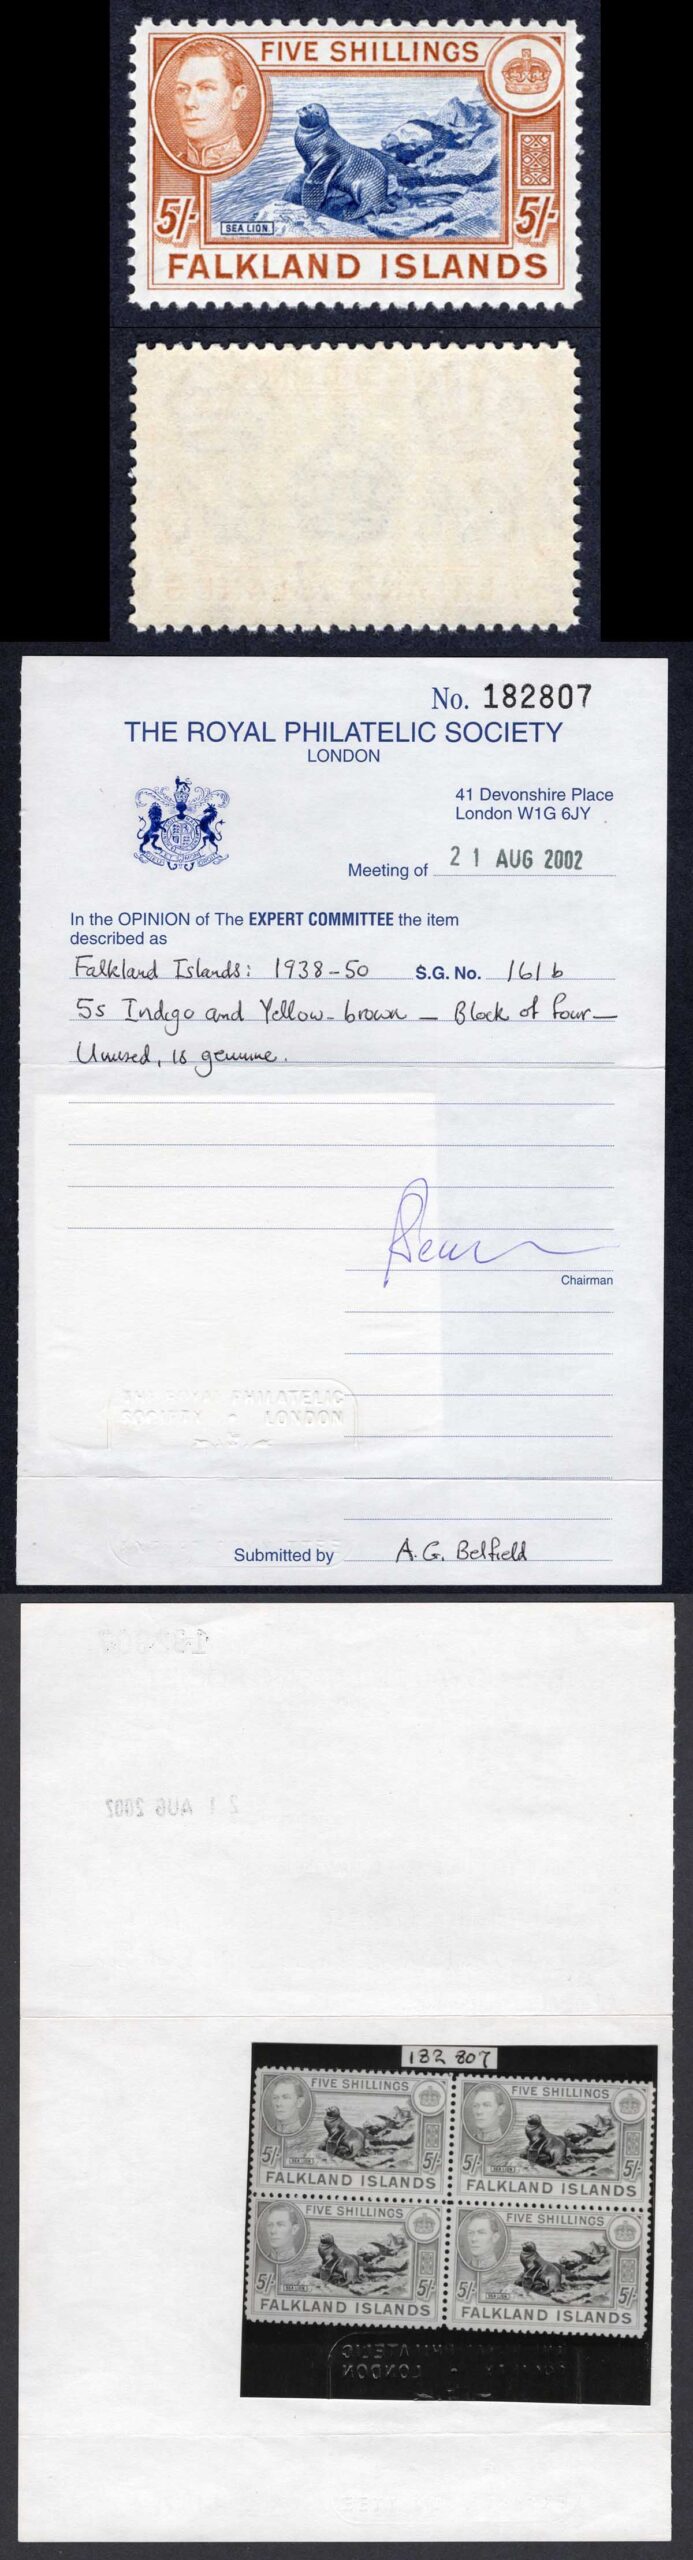 FIVE SHILLINGS
5/- 5/-
SEA LION
FALKLAND ISLANDS
No. 182807
THE ROYAL PHILATELIC SOCIETY
LONDON
41 Devonshire Place
London W1G 6JY
Meeting of 21 AUG 2002
In the OPINION of The EXPERT COMMITTEE the item
described as
Falkland Islands: 1938-50 S.G. No. 161b
5s Indigo and Yellow-brown – Block of four –
Unused, is genuine.
Chairman
THE ROYAL PHILATELIC
SOCIETY LONDON
Submitted by A.G. Belfield
21 AUG 2002
182807
FIVE SHILLINGS FIVE SHILLINGS
5/- 5/- 5/- 5/-
SEA LION SEA LION
FALKLAND ISLANDS FALKLAND ISLANDS
FIVE SHILLINGS FIVE SHILLINGS
5/- 5/- 5/- 5/-
SEA LION SEA LION
FALKLAND ISLANDS FALKLAND ISLANDS